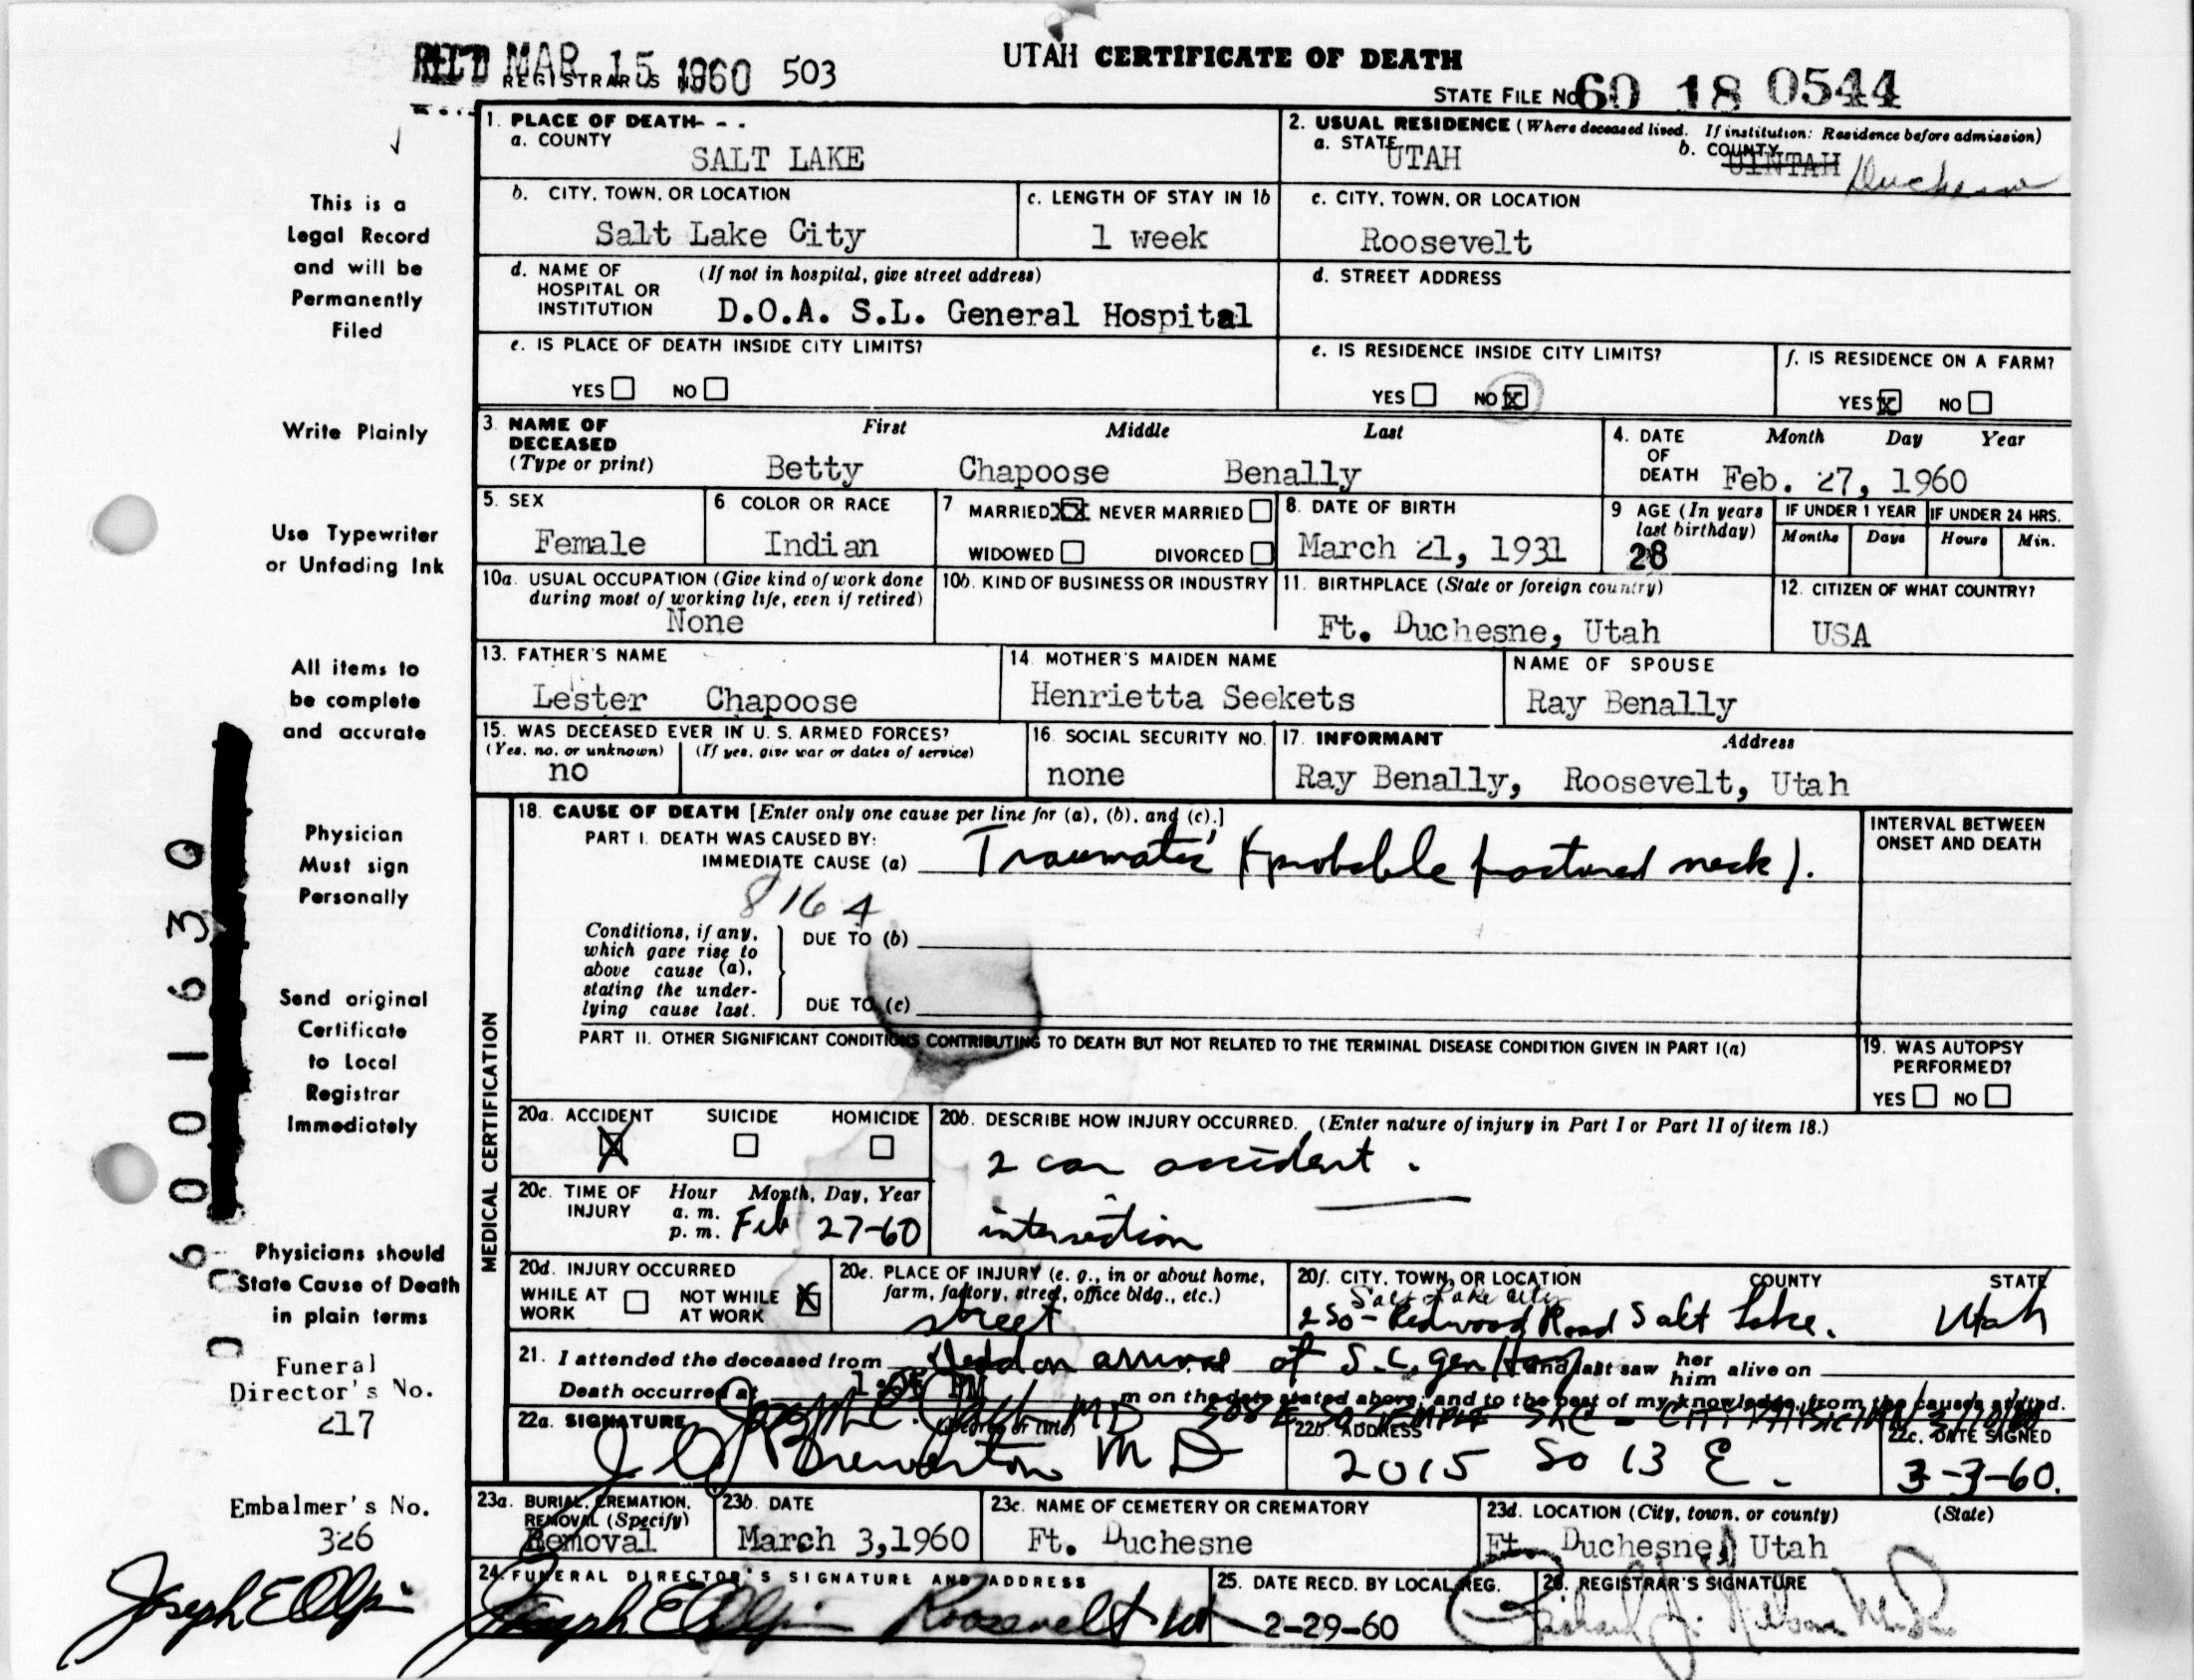 UTAH CERTIFICATE OF DEATH
REC'D MAR 15 1960 REGISTRAR'S 503
STATE FILE No. 60 18 0544
1. PLACE OF DEATH
a. COUNTY
SALT LAKE
2. USUAL RESIDENCE (Where deceased lived. If institution: Residence before admission)
a. STATE UTAH
b. COUNTY UINTAH Duchesne
b. CITY, TOWN, OR LOCATION
Salt Lake City
c. LENGTH OF STAY IN 1b
1 week
c. CITY, TOWN, OR LOCATION
Roosevelt
d. NAME OF HOSPITAL OR INSTITUTION (If not in hospital, give street address)
D.O.A. S.L. General Hospital
d. STREET ADDRESS
e. IS PLACE OF DEATH INSIDE CITY LIMITS?
YES NO
e. IS RESIDENCE INSIDE CITY LIMITS?
YES NO X
f. IS RESIDENCE ON A FARM?
YES X NO
3. NAME OF DECEASED (Type or print)
First Middle Last
Betty Chapoose Benally
4. DATE OF DEATH
Month Day Year
Feb. 27, 1960
5. SEX
Female
6. COLOR OR RACE
Indian
7. MARRIED XX NEVER MARRIED
WIDOWED DIVORCED
8. DATE OF BIRTH
March 21, 1931
9 AGE (In years last birthday)
28
IF UNDER 1 YEAR
Months Days
IF UNDER 24 HRS.
Hours Min.
10a. USUAL OCCUPATION (Give kind of work done during most of working life, even if retired)
None
10b. KIND OF BUSINESS OR INDUSTRY
11. BIRTHPLACE (State or foreign country)
Ft. Duchesne, Utah
12. CITIZEN OF WHAT COUNTRY?
USA
13. FATHER'S NAME
Lester Chapoose
14. MOTHER'S MAIDEN NAME
Henrietta Seekets
NAME OF SPOUSE
Ray Benally
15. WAS DECEASED EVER IN U. S. ARMED FORCES?
(Yes, no, or unknown) (If yes, give war or dates of service)
no
16. SOCIAL SECURITY NO.
none
17. INFORMANT Address
Ray Benally, Roosevelt, Utah
MEDICAL CERTIFICATION
18. CAUSE OF DEATH [Enter only one cause per line for (a), (b), and (c).]
PART I. DEATH WAS CAUSED BY:
IMMEDIATE CAUSE (a) Traumatic (probable fractured neck).
8164
Conditions, if any, which gave rise to above cause (a), stating the underlying cause last.
DUE TO (b)
DUE TO (c)
INTERVAL BETWEEN ONSET AND DEATH
PART II. OTHER SIGNIFICANT CONDITIONS CONTRIBUTING TO DEATH BUT NOT RELATED TO THE TERMINAL DISEASE CONDITION GIVEN IN PART I(a)
19. WAS AUTOPSY PERFORMED?
YES NO
20a. ACCIDENT SUICIDE HOMICIDE
X
20b. DESCRIBE HOW INJURY OCCURRED. (Enter nature of injury in Part I or Part II of item 18.)
2 car accident.
intersection
20c. TIME OF INJURY
Hour Month, Day, Year
a. m.
p. m. Feb 27-60
20d. INJURY OCCURRED
WHILE AT WORK NOT WHILE AT WORK X
20e. PLACE OF INJURY (e. g., in or about home, farm, factory, street, office bldg., etc.)
street
20f. CITY, TOWN, OR LOCATION COUNTY STATE
Salt Lake City
250- Redwood Road Salt Lake. Utah
21. I attended the deceased from Dead on arrival at S.L. Gen Hosp and last saw her him alive on
Death occurred at 1:05 m on the date stated above; and to the best of my knowledge, from the causes stated.
22a. SIGNATURE (Degree or title)
Brewerton MD
22b. ADDRESS
2015 So 13 E.
22c. DATE SIGNED
3-3-60.
23a. BURIAL, CREMATION, REMOVAL (Specify)
Removal
23b. DATE
March 3,1960
23c. NAME OF CEMETERY OR CREMATORY
Ft. Duchesne
23d. LOCATION (City, town, or county) (State)
Ft. Duchesne, Utah
24. FUNERAL DIRECTOR'S SIGNATURE AND ADDRESS
Joseph E Olpin Roosevelt Ut
25. DATE RECD. BY LOCAL REG.
2-29-60
26. REGISTRAR'S SIGNATURE
This is a
Legal Record
and will be
Permanently
Filed
Write Plainly
Use Typewriter
or Unfading Ink
All items to
be complete
and accurate
Physician
Must sign
Personally
Send original
Certificate
to Local
Registrar
Immediately
Physicians should
State Cause of Death
in plain terms
Funeral
Director's No.
217
Embalmer's No.
326
Joseph E Olpin
6001630